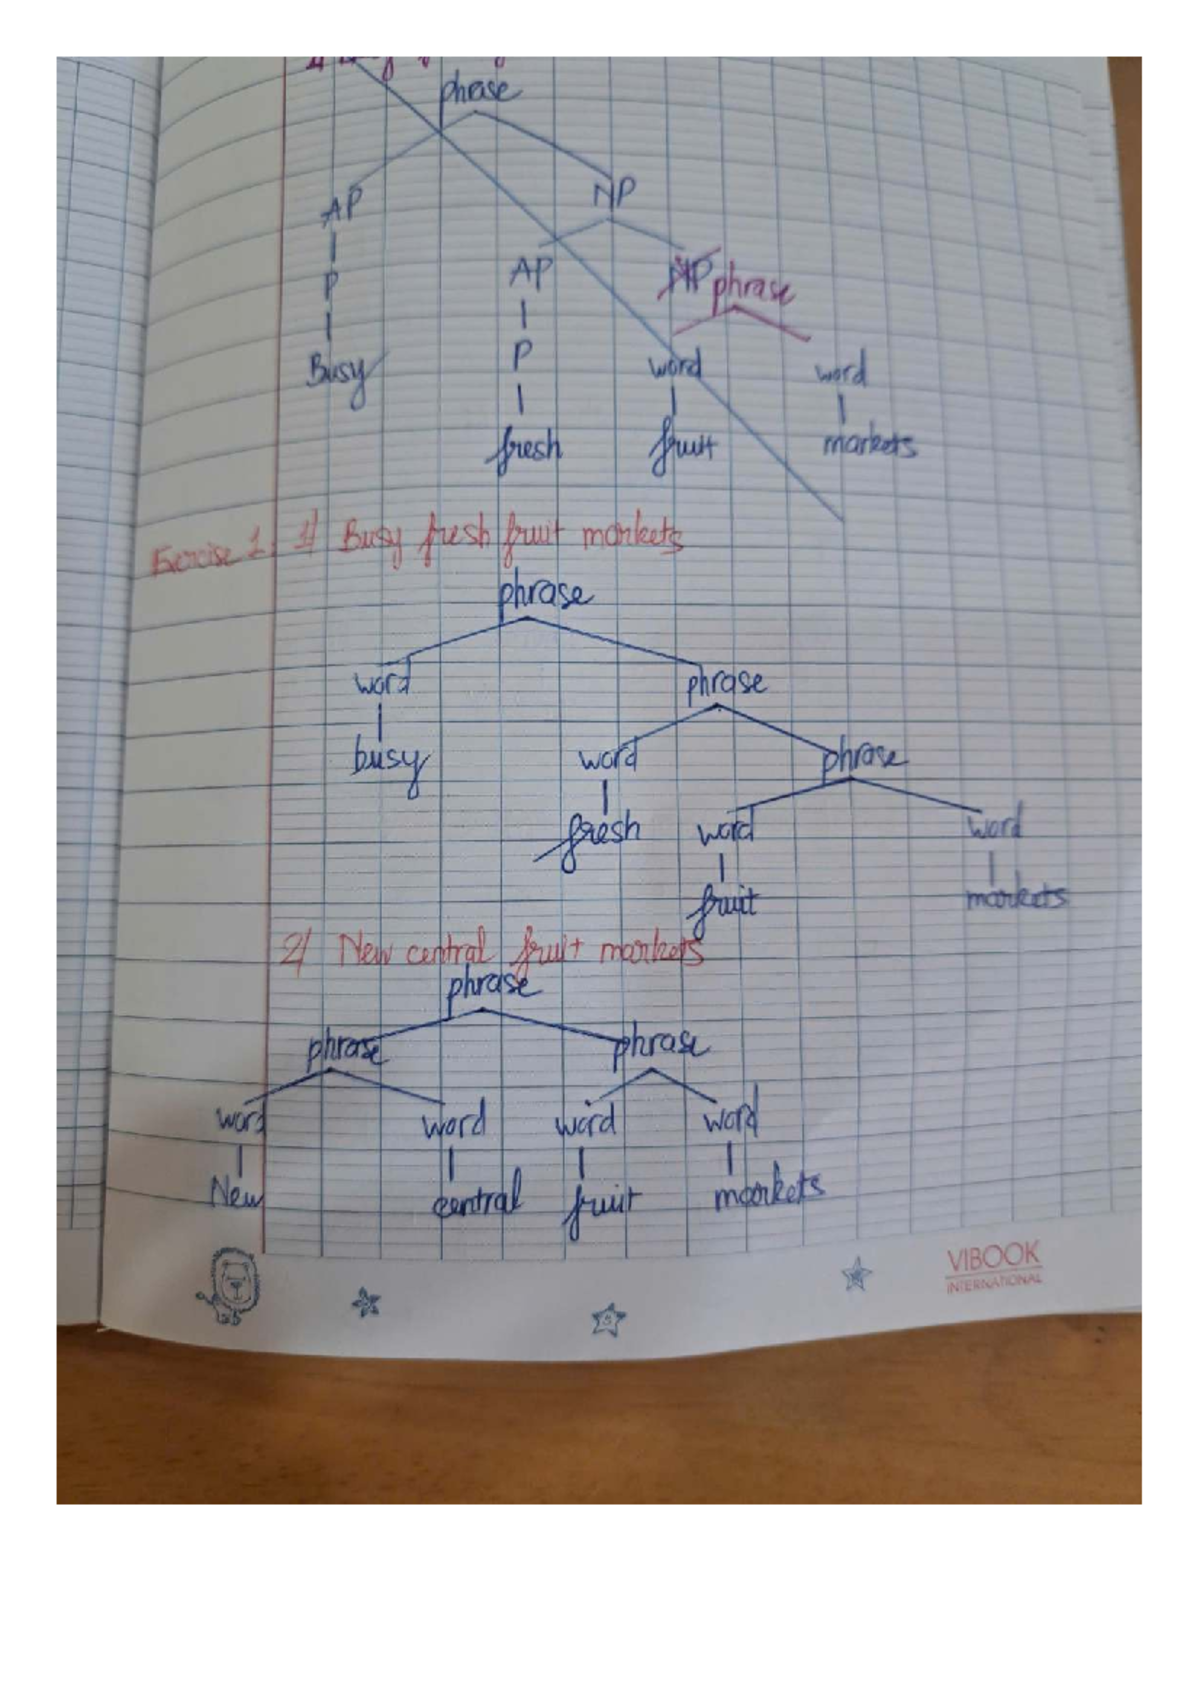 phrase
AP NP
AP NP phrase
P
P word word
Busy
fresh fruit markets
Exercise 1 1/ Busy fresh fruit markets
phrase
word phrase
busy word phrase
fresh word word
fruit markets
2/ New central fruit markets
phrase
phrase phrase
word word word word
New central fruit markets
VIBOOK
INTERNATIONAL